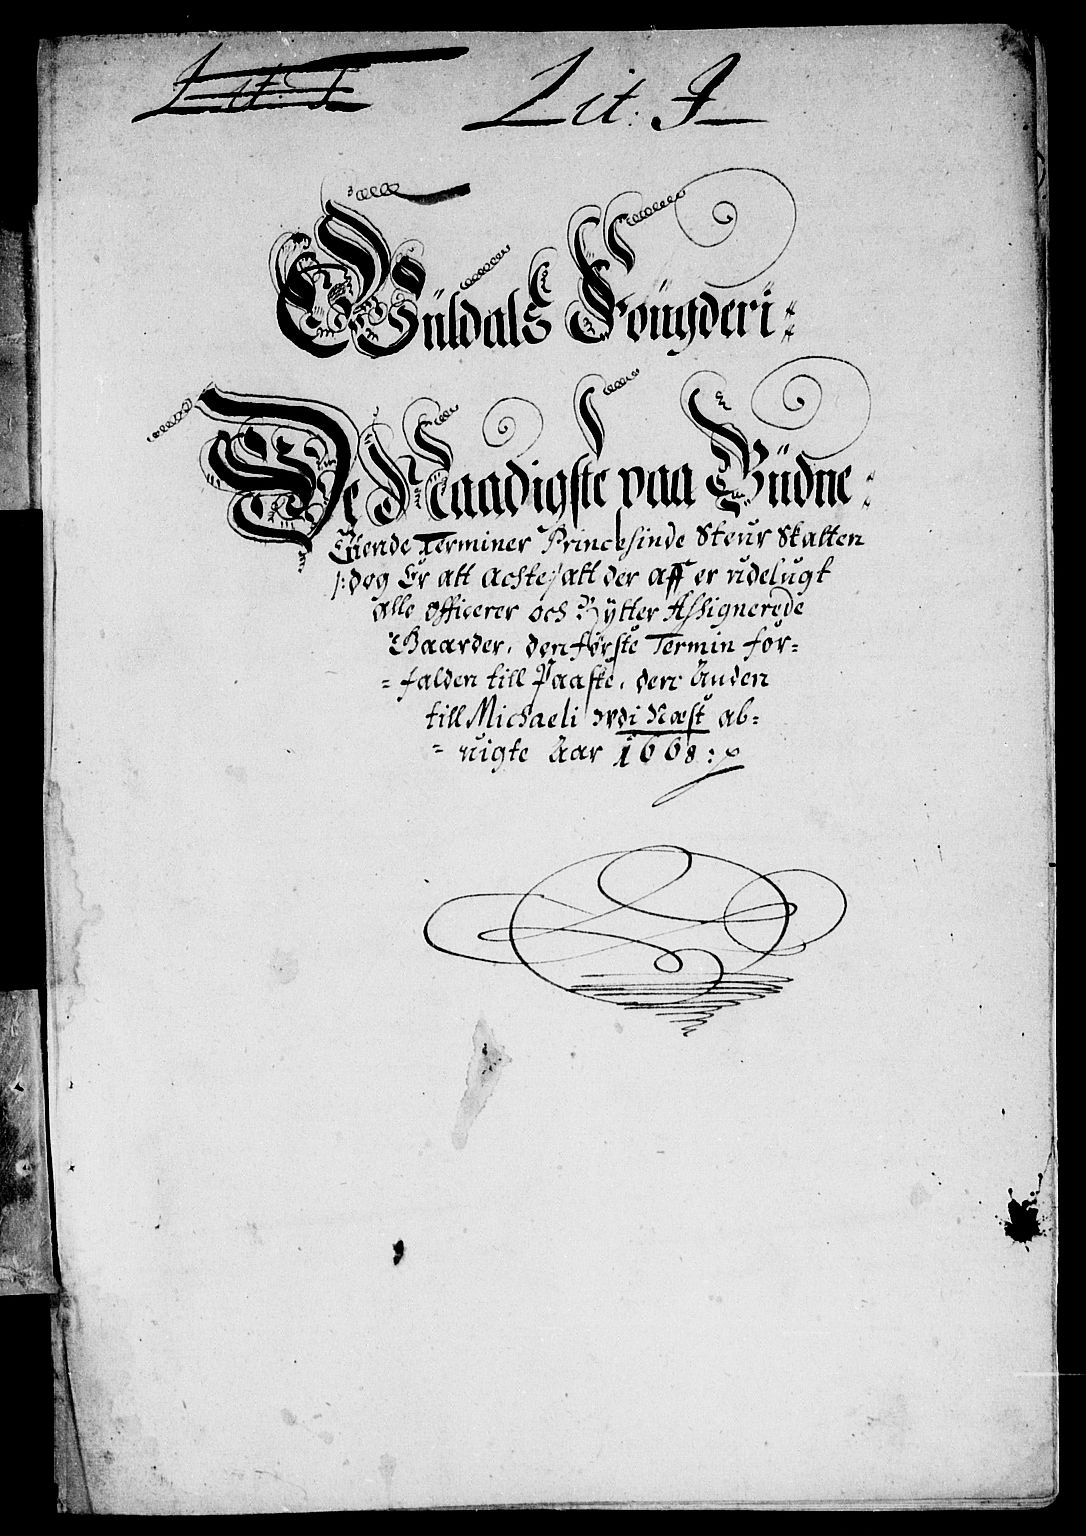 Lit: I Lit. I
Guldals Fougderi
De Naadigste paa Büdne
Eiende Terminer Princesinde Steur Skatten
/: dog Er att achte, att der aff er udelugt
alle officerer och Rytter Assignerede
Gaarder, den første Termin for-
-falden till Paaske, den Anden
till Michaeli udi Næst ab-
-uigte Aar 1668 :/